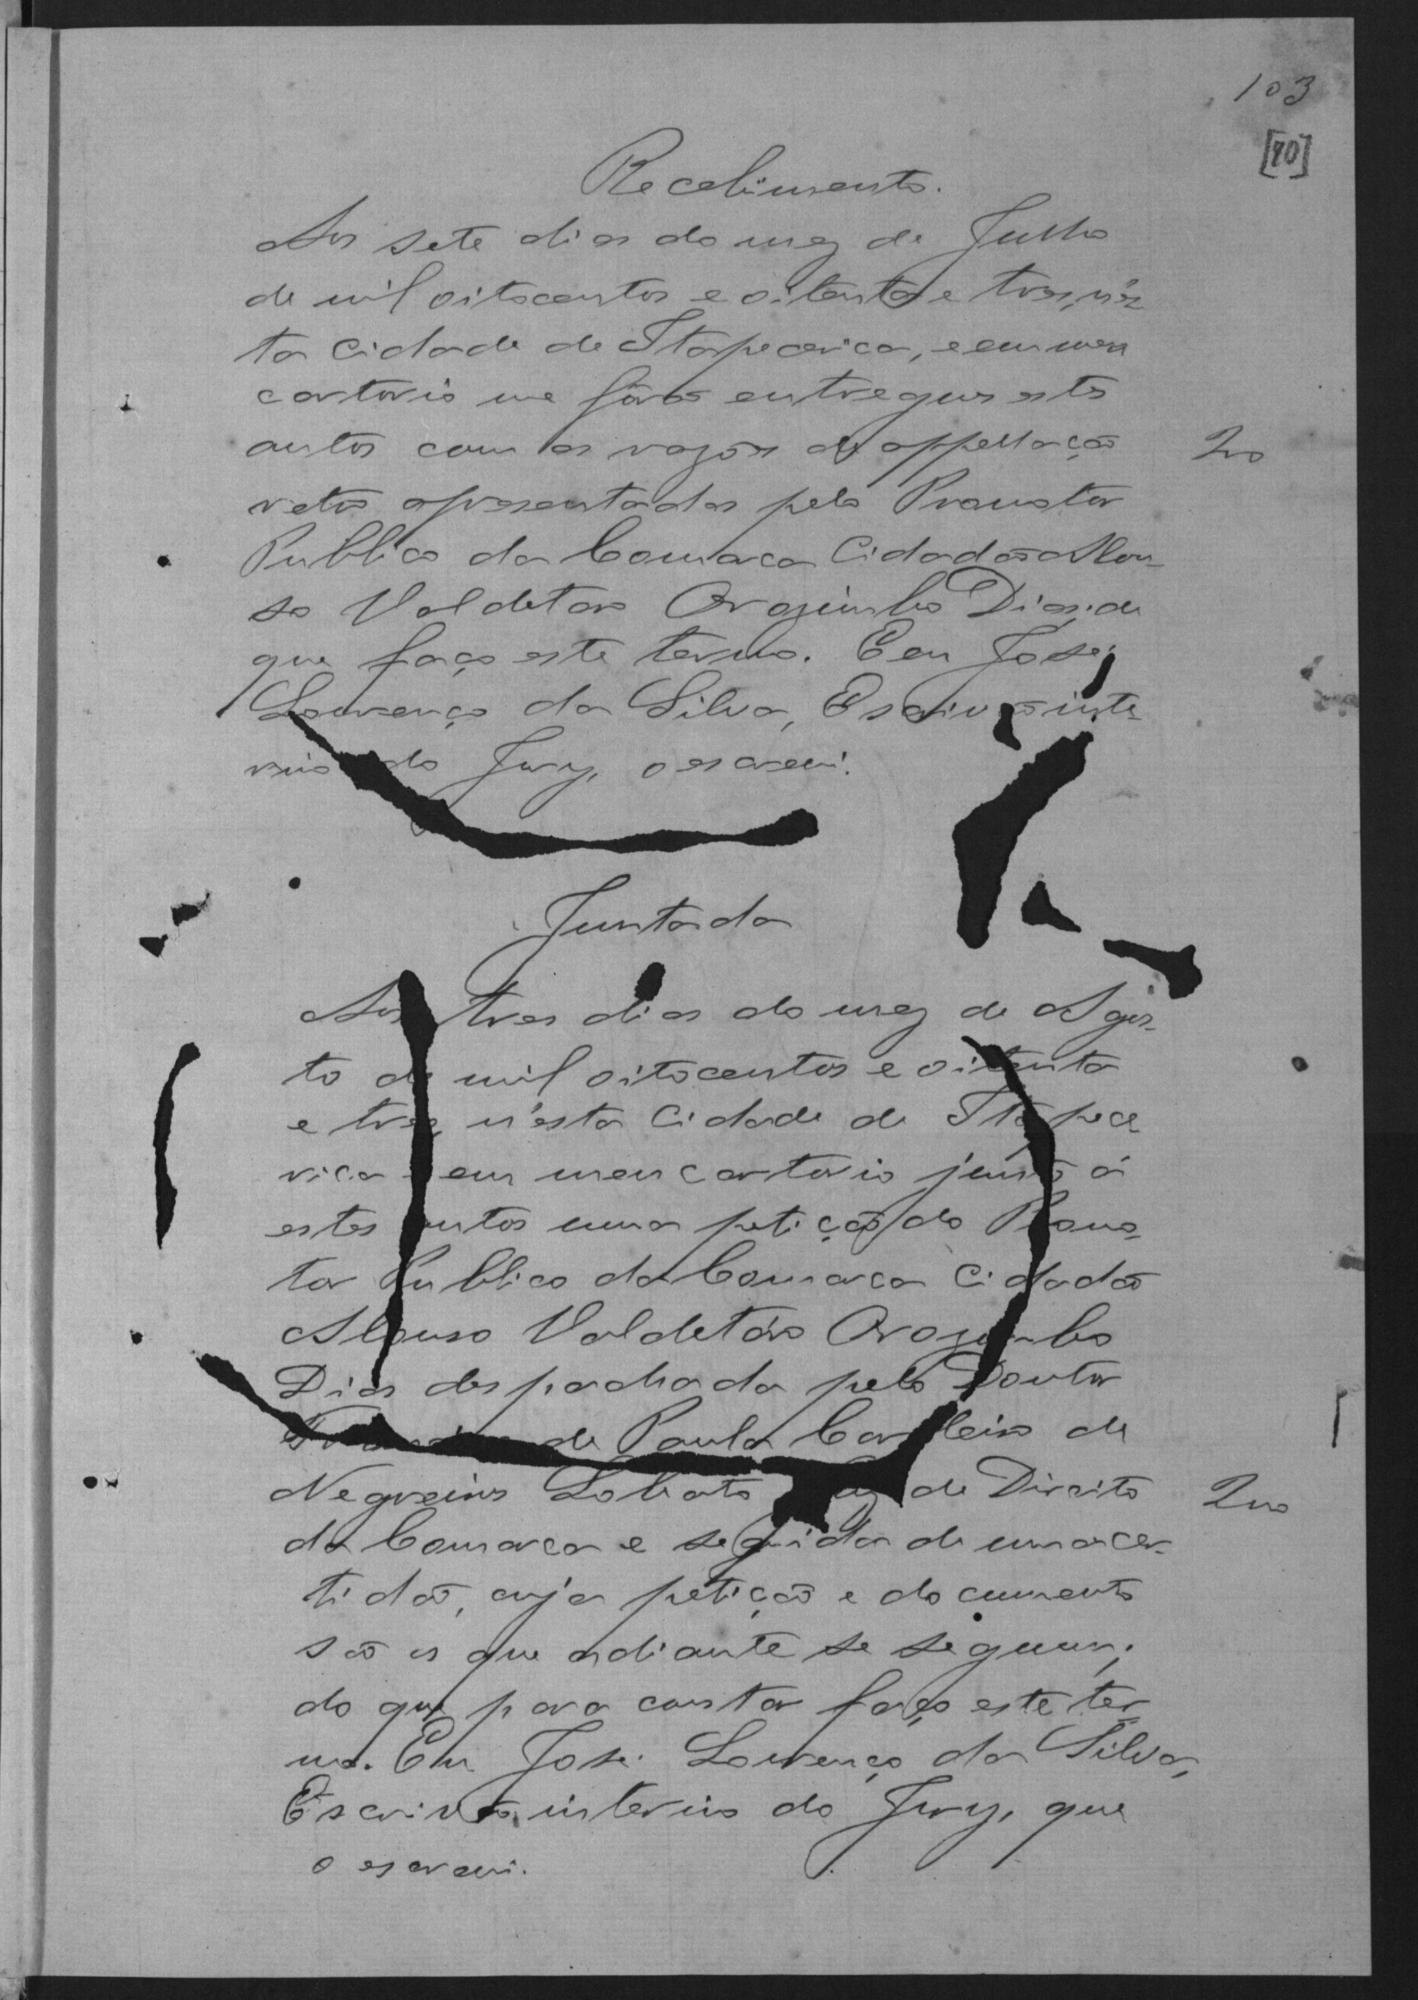 103
[90]
Recebimento.
Aos sete dias do mez de Julho
de mil oitocentos e oitenta e tres, n'es-
ta Cidade de Itapecerica, e em meu
cartorio me forão entregues estes
autos com as razões de appellação
retro apresentadas pelo Promotor
Publico da Comarca Cidadão Alon-
so Valdetaro Orozimbo Dias; de
que faço este termo. E eu José
Lourenço da Silva, Escrivão inte-
rino do Jury, o escrevi.
200
Juntada
Aos tres dias do mez de Agos-
to de mil oitocentos e oitenta
e tres n'esta Cidade de Itapece-
rica em meu cartorio junto á
estes autos uma petição do Promo-
tor Publico da Comarca Cidadão
Alonso Valdetáro Orozimbo
Dias despachada pelo Doutor
de Paula Cordeiro de
Negreiros Lobato Juiz de Direito
da Comarca e seguida de uma cer-
tidão, cuja petição e documento
são os que adiante se seguem;
do que para constar faço este ter-
mo. Eu José Lourenço da Silva,
Escrivão interino do Jury, que
o escrevi.
200